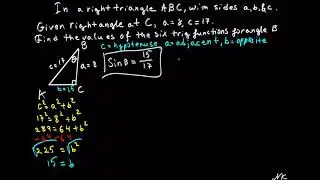 In a right triangle ABC, with sides a, b, & c.
Given right angle at C, a = 8 c = 17.
Find the values of the six trig functions for angle B
c = hypotenuse a = adjacent, b = opposite
B
c = 17
a = 8
b = 15
A
C
Sin B = 15/17
c² = a² + b²
17² = 8² + b²
289 = 64 + b²
-64 -64
225 = b²
15 = b